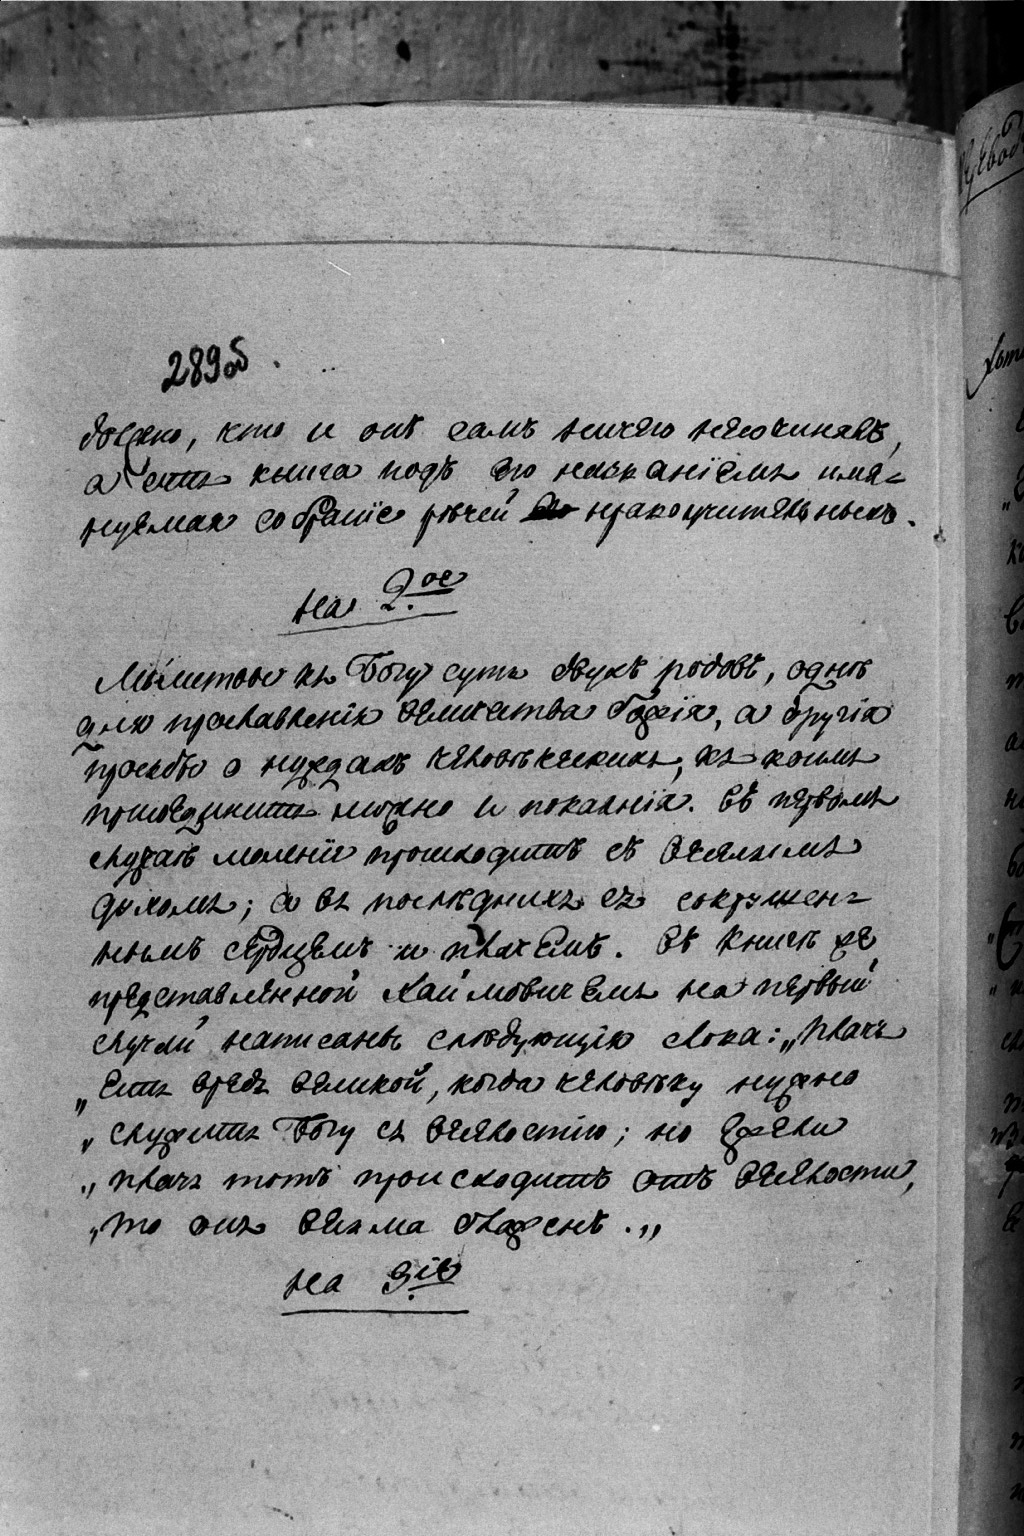 289об.
досено, кто и онъ самъ ничего несочинялъ,
а есть книга подъ его названіемъ имя-
нуемая собраніе рѣчей нравоучительныхъ.
на 2.ое
Молитвы къ Богу суть двухъ родовъ, однѣ
для прославленія величества Божія, а другія
просьбы о нуждахъ человѣческихъ, къ коимъ
присоединить можно и покаянія. Въ первомъ
случаѣ моленіе происходитъ съ веселымъ
духомъ; а въ послѣднихъ съ сокрушен-
нымъ сердцемъ и плачемъ. Въ книгѣ же
представленной Хаймовичемъ на первый
случай написаны слѣдующія слова: „плачъ
„есть вредъ великой, когда человѣку нужно
„служить Богу съ веселостію; но ежели
„плачъ тотъ происходитъ отъ веселости,
„то онъ весьма блаженъ.„
на 3.іе